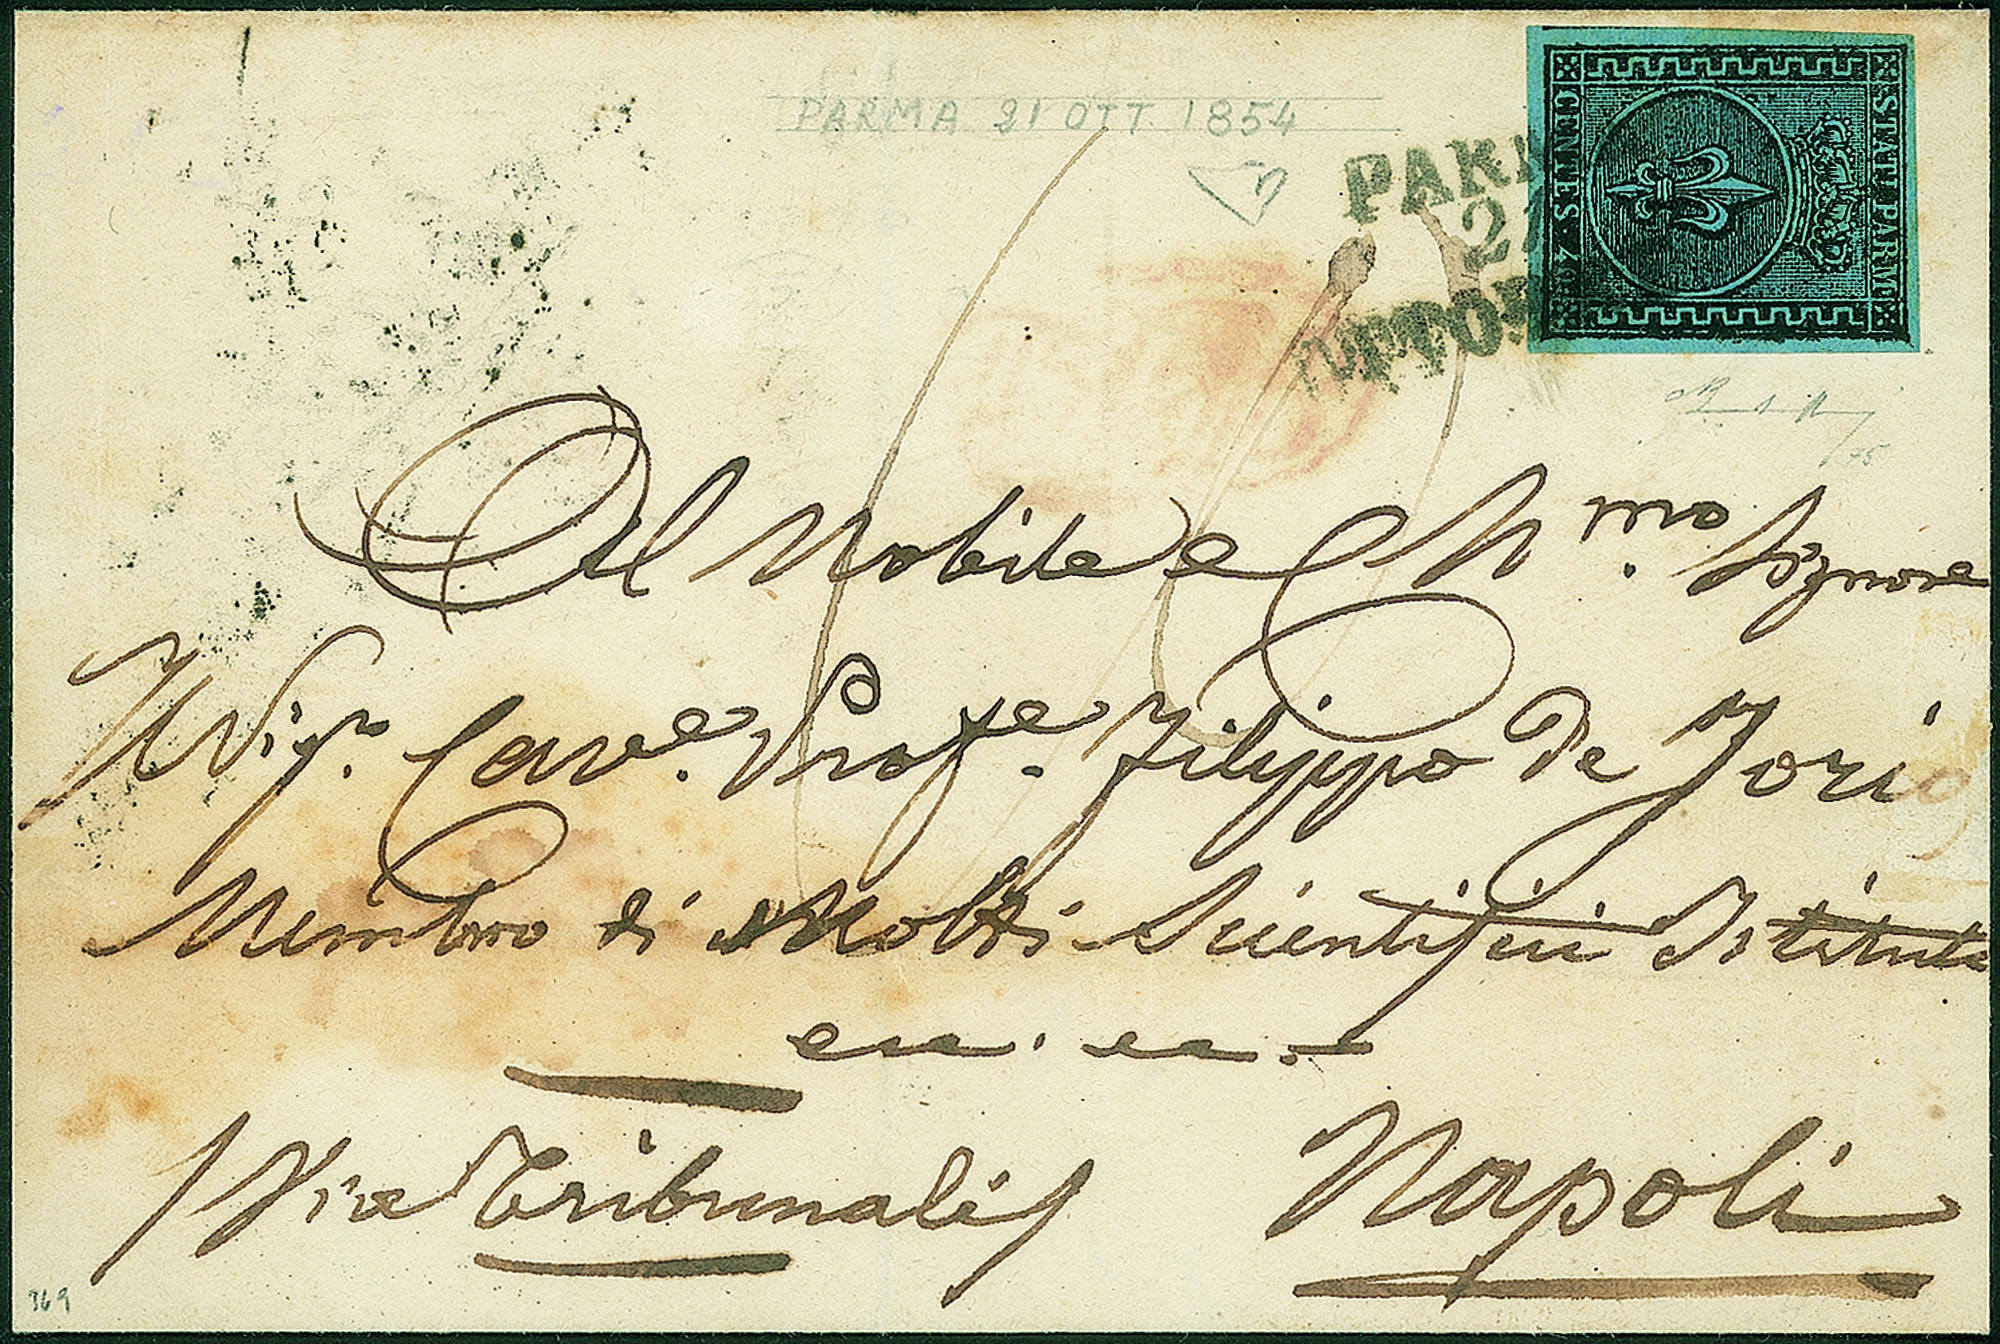 PARMA 21 OTT 1854
PAR
21
OTTOB
STATI PARM.
CENTES. 40
Al Nobile e Ch.mo Signore
Il Sig.r Cav.e Prof.e Filippo De Jorio
Membro di Molti Scientifici Istituti
ec. ec.
(Via Tribunali)
Napoli
369